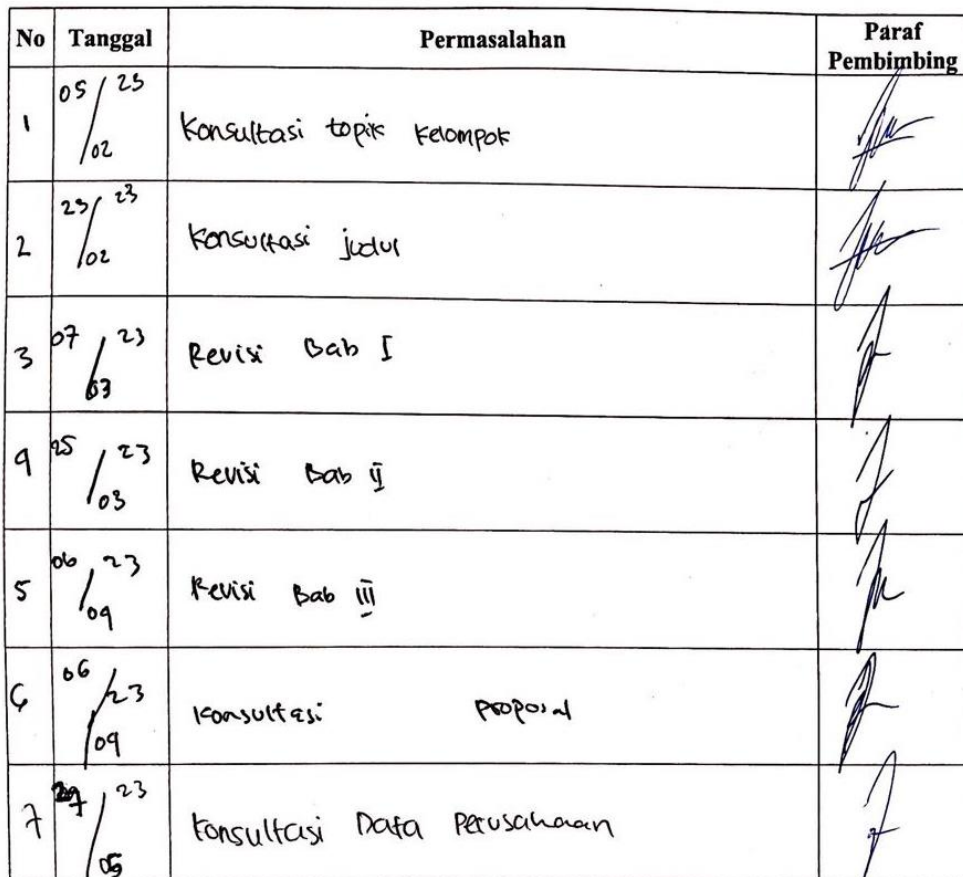 No Tanggal Permasalahan Paraf Pembimbing
1 05/02 23 Konsultasi topik Kelompok
2 23/02 23 Konsultasi judul
3 07/03 23 Revisi Bab I
4 25/03 23 Revisi Bab II
5 06/04 23 Revisi Bab III
6 06/04 23 Konsultasi proposal
7 23 05 Konsultasi Data Perusahaan